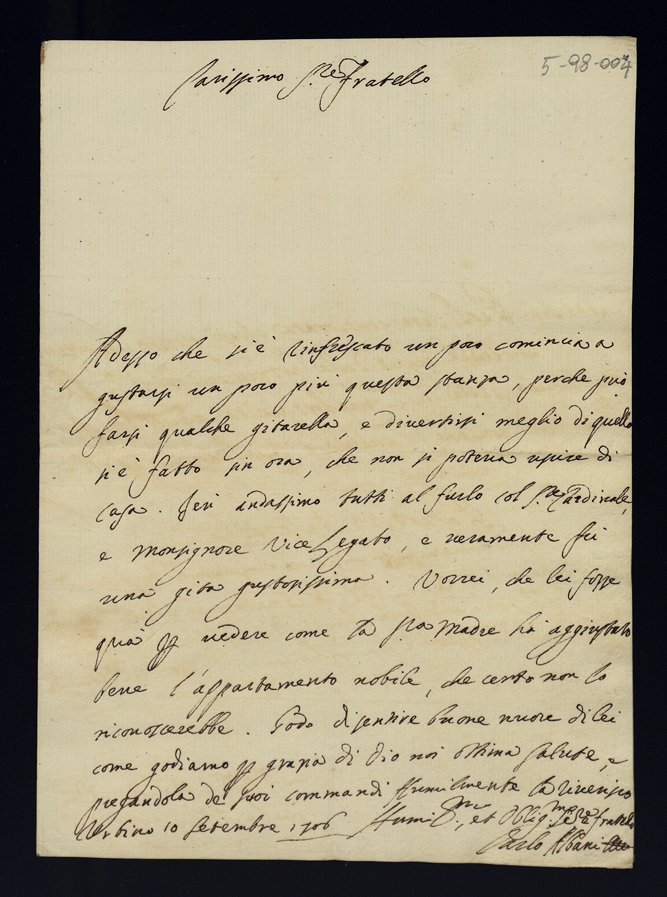 5-98-004
Carissimo Sre Fratello
Adesso che si è rinfrescato un poco comincia a
gustarsi un poco più questa stanza, perche può
farsi qualche gitarella, e divertirsi meglio di quello
si è fatto sin ora, che non si poteva uscire di
casa. Ieri andassimo tutti al furlo col Sre Cardinale,
e Monsignore Vice Legato, e veramente fu
una gita gustosissima. Vorrei, che lei fosse
quà per vedere come la Sra Madre hà aggiustato
bene l'appartamento nobile, che certo non lo
riconoscerebbe. Godo di sentire buone nuove di lei
come godiamo per grazia di Dio noi ottima salute, e
pregandola de suoi commandi humilmente la riverisco
Urbino 10 Settembre 1706 Humil.mo, et Oblig.mo Sre e fratello
Carlo Albani